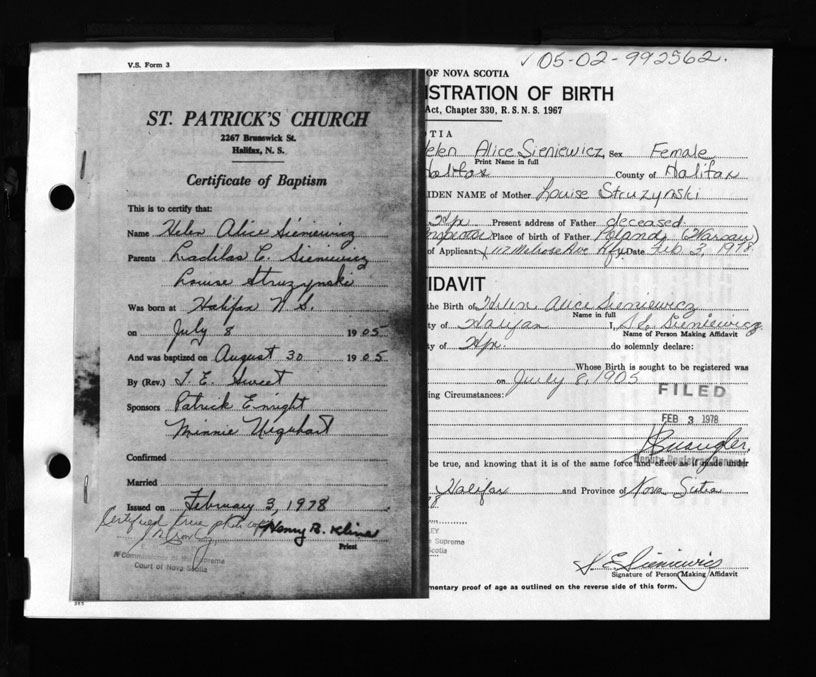 V.S. Form 3
ST. PATRICK'S CHURCH
2267 Brunswick St.
Halifax, N. S.
Certificate of Baptism
This is to certify that:
Name Helen Alice Sieniewicz
Parents Ladilas C. Sieniewicz
Louise Struzynski
Was born at Halifax N S.
on July 8 1905
And was baptized on August 30 1905
By (Rev.) T. E. Sweet
Sponsors Patrick Enright
Minnie Urquhart
Confirmed
Married
Issued on February 3, 1978
Certified true photo copy
Henry B. Kline
Priest
A Commissioner of the Supreme
Court of Nova Scotia
05-02-992562.
OF NOVA SCOTIA
ISTRATION OF BIRTH
Act, Chapter 330, R. S. N. S. 1967
OTIA
elen Alice Sieniewicz Sex Female
Print Name in full
Halifax County of Halifax
IDEN NAME of Mother Louise Struzynski
Hfx Present address of Father deceased
Inspector Place of birth of Father Poland (Warsaw)
of Applicant 112 Melrose Ave Hfx Date Feb 3, 1978
FIDAVIT
the Birth of Helen Alice Sieniewicz
Name in full
ty of Halifax I, Sieniewicz
Name of Person Making Affidavit
ty of Hfx. do solemnly declare:
Whose Birth is sought to be registered was
on July 8, 1905
ing Circumstances:
FILED
FEB 3 1978
Deputy Registrar General
be true, and knowing that it is of the same force and effect as if made under
Halifax and Province of Nova Scotia
78
LEY
e Supreme
Scotia
Sieniewicz
Signature of Person Making Affidavit
mentary proof of age as outlined on the reverse side of this form.